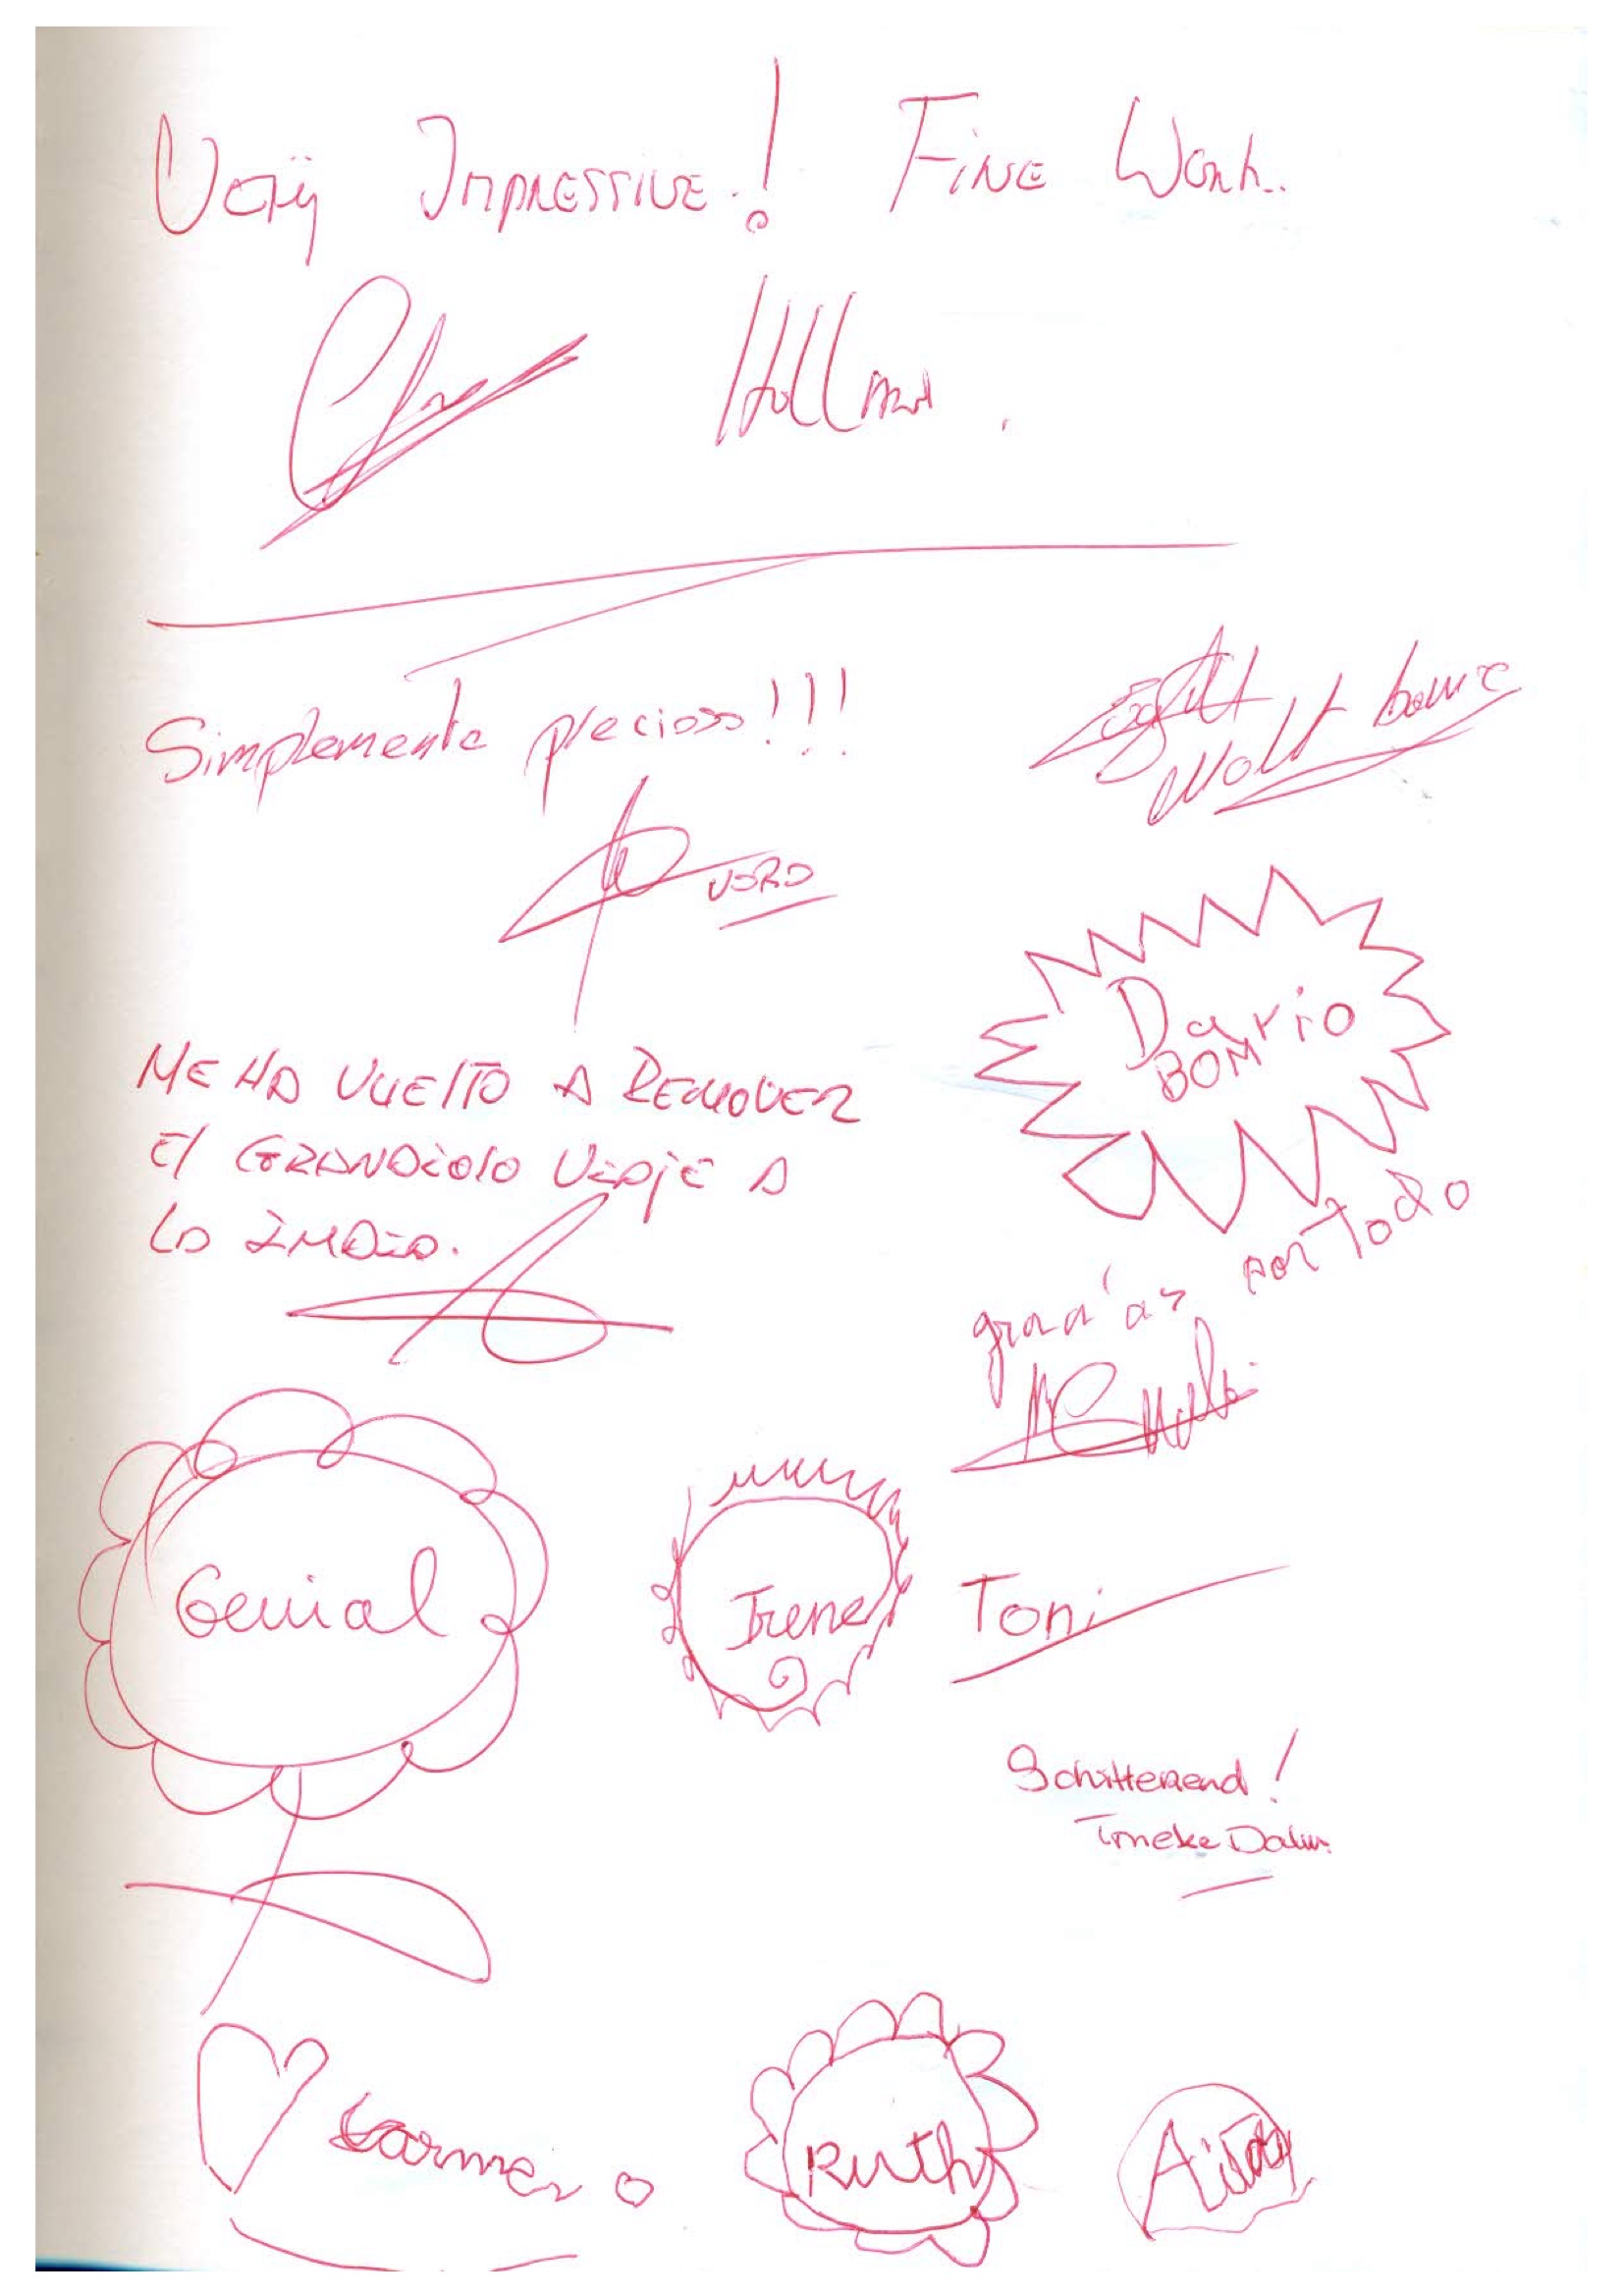 Very Impressive! Fine Work.
Holland.
Simplemente precioso!!!
VORO
Dario
BOM
ME HA VUELTO A REMOVER
El GRANDIOSO VIAJE A
LA INDIA.
gracias por todo
Genial
Irene
Toni
Schitterend!
Tineke
Carmen
Ruth